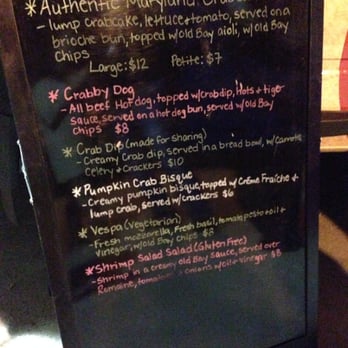 * Authentic Maryland
- lump crabcake, lettuce + tomato, served on a
brioche bun, topped w/old Bay aioli, w/ old Bay
chips
Large: $12 Petite: $7
* Crabby Dog
- All beef Hot dog, topped w/crab dip, Hots + tiger
sauce, served on a hot dog bun, served w/ old Bay
chips $8
* Crab Dip (made for sharing)
- Creamy Crab dip, served in a bread bowl, w/ Carrots,
Celery + Crackers $10
* Pumpkin Crab Bisque
- Creamy pumpkin bisque, topped w/ Crème Fraiche +
lump crab, served w/ crackers $6
* Vespa (Vegetarian)
- Fresh mozzarella, Fresh basil, tomato pesto oil +
vinegar, w/old Bay chips $8
* Shrimp Salad Salad (Gluten Free)
- Shrimp in a creamy old Bay sauce, served over
Romaine, tomatoes + onions w/ oil + vinegar $8